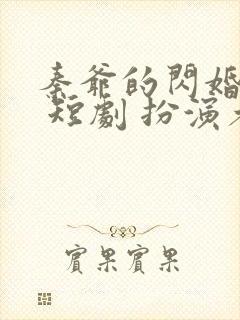 秦爺的閃婚
短劇 扮演
賓果賓果